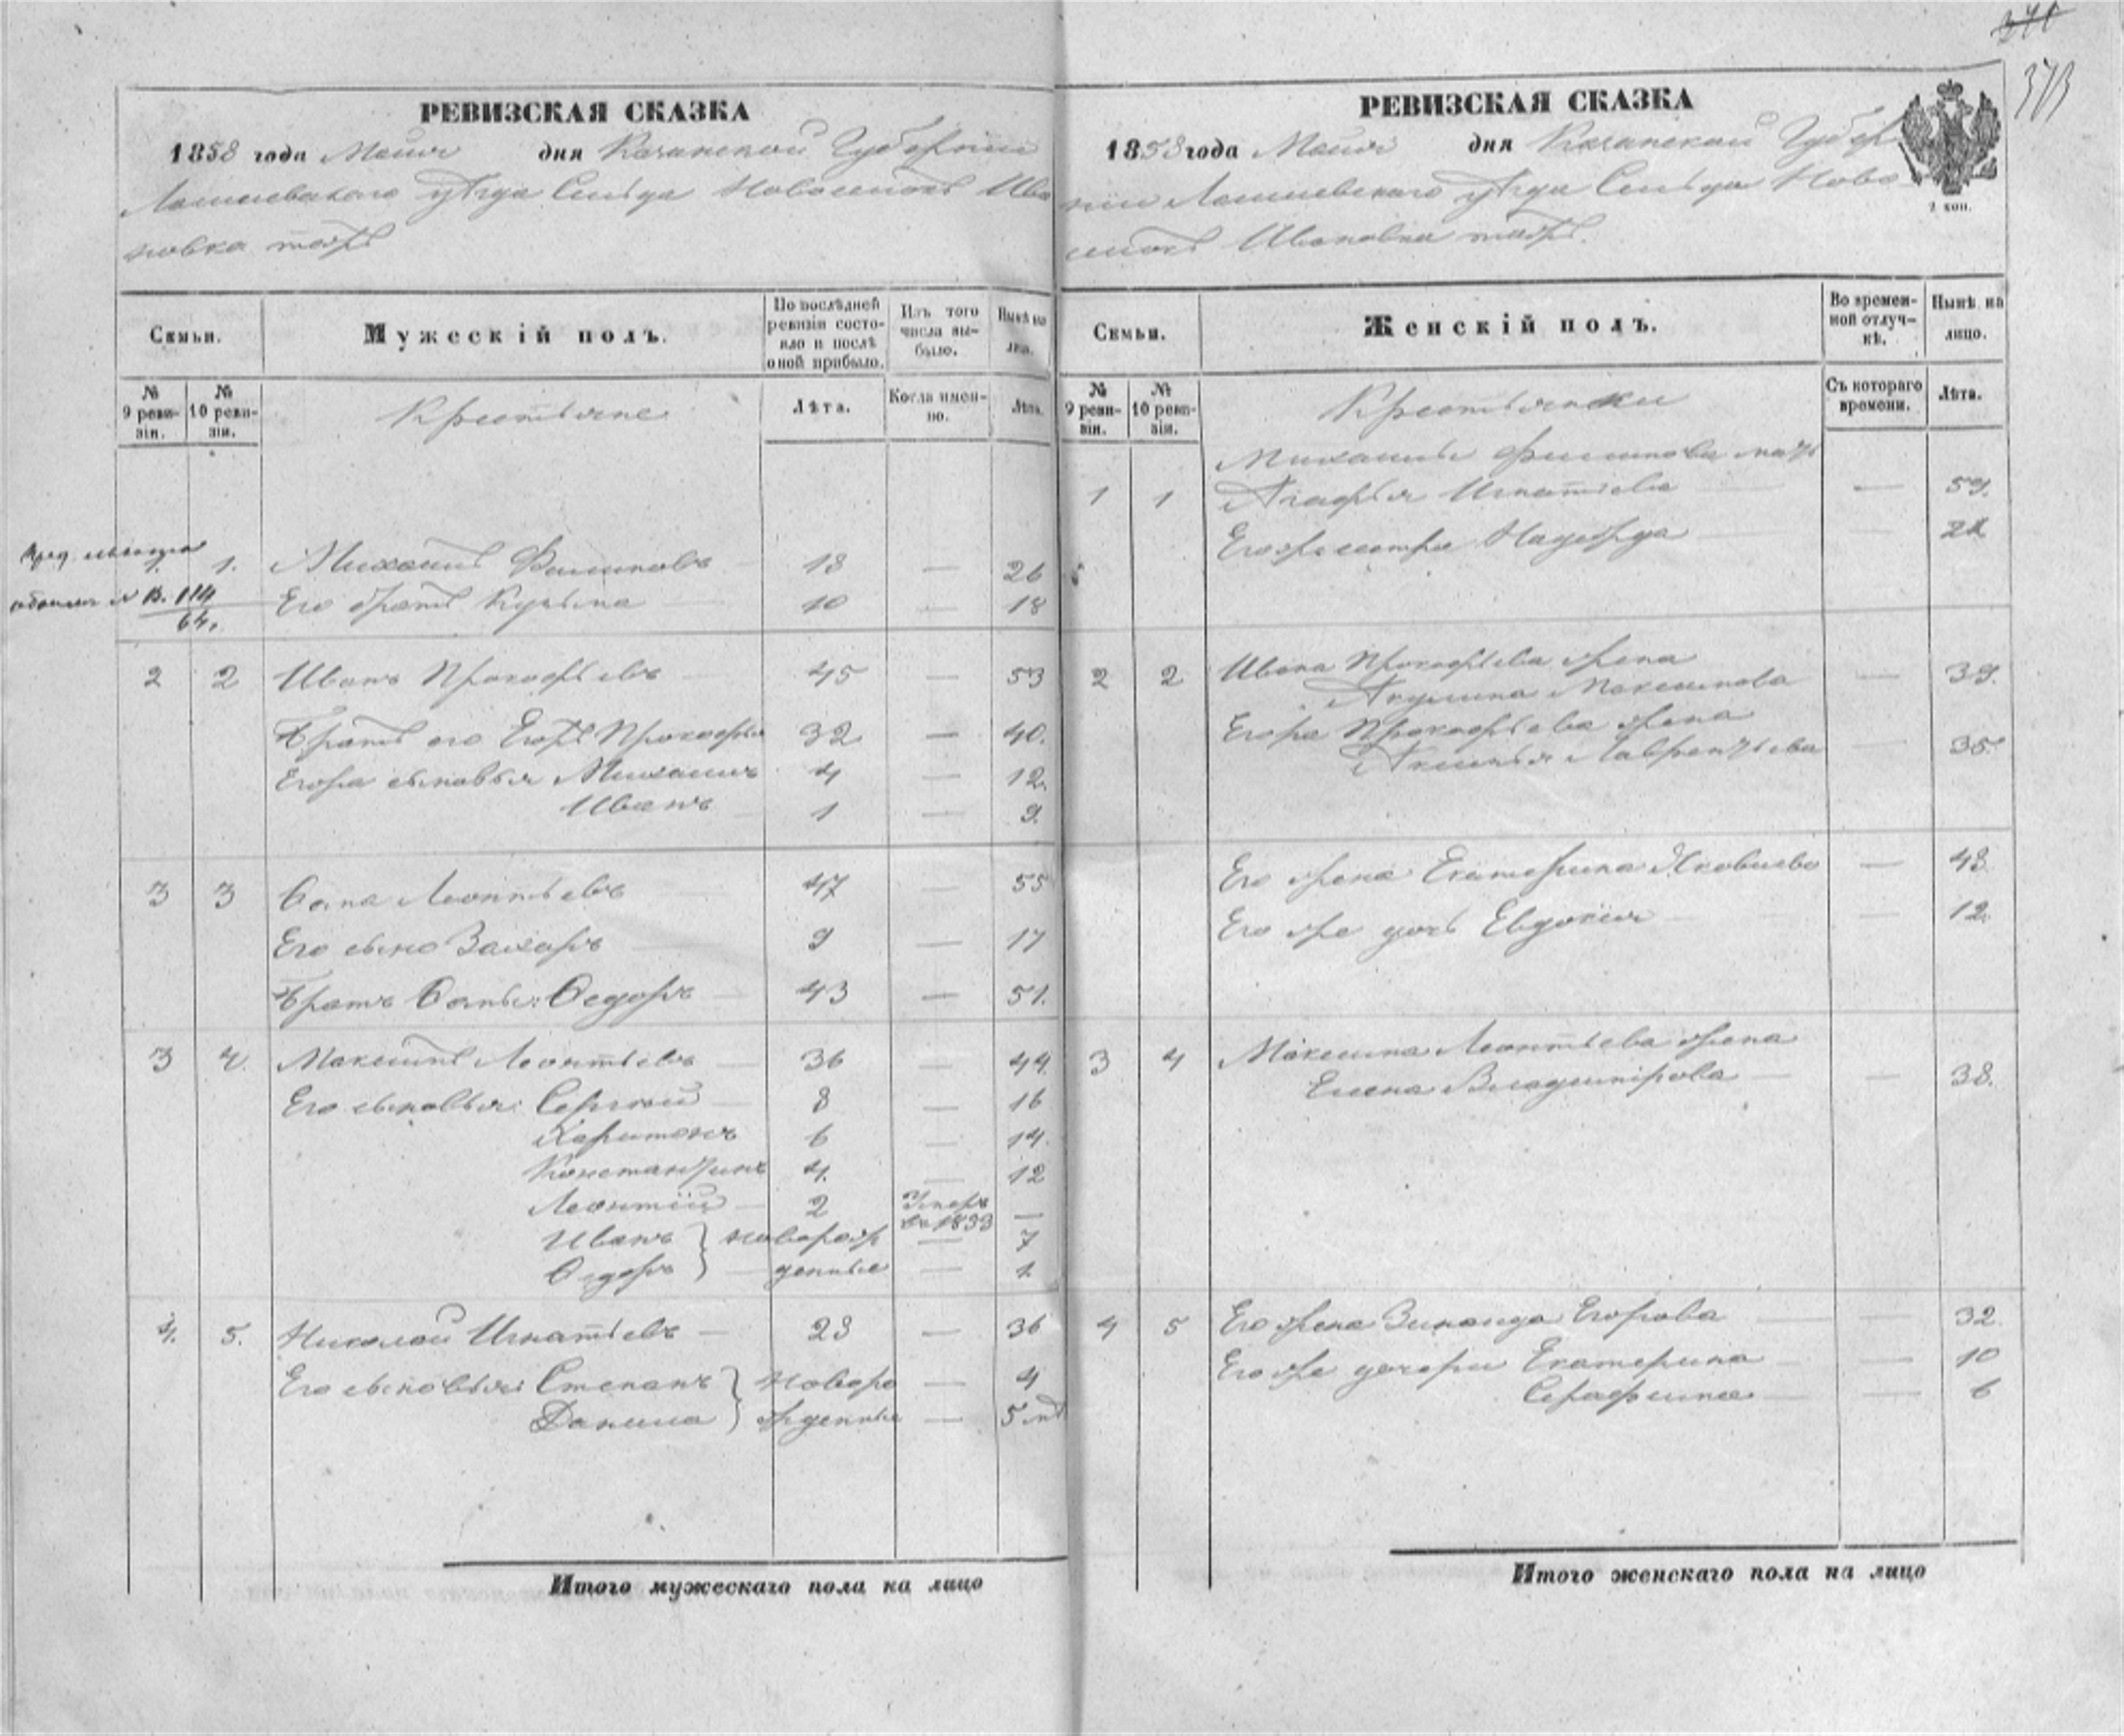 РЕВИЗСКАЯ СКАЗКА
1858 года Маія дня Казанской Губерніи
Лаишевскаго уѣзда Сельца Новоселокъ Ива
новка тожъ
Семьи.
Мужескій полъ.
По послѣдней ревизіи состояло и послѣ оной прибыло.
Изъ того числа выбыло.
Нынѣ на лицо.
№ 9 ревизіи.
№ 10 ревизіи.
Крестьяне
Лѣта.
Когда именно.
Лѣта.
1. Михаилъ Филиповъ 18 — 26
114
64.
Его братъ Кузьма 10 — 18
2 2 Иванъ Прокофьевъ 45 — 53
Братъ его Егоръ Прокофьевъ 32 — 40.
Егора сыновья Михаилъ 4 — 12.
Иванъ 1 — 9.
3 3 Леонтьевъ 47 — 55
Его сынъ Захаръ 9 — 17
Братъ Ѳедоръ 43 — 51.
3 4. Максимъ Леонтьевъ 36 — 44.
Его сыновья: Сергѣй 8 — 16
Харитонъ 6 — 14.
Константинъ 4. — 12
Леонтій 2 Умеръ —
Иванъ } новорож — 7
Ѳедоръ } денные — 1
4. 5. Николай Игнатьевъ 28 — 36
Его сыновья: Степанъ } новоро — 4
Данила } жденные — 5 м
Итого мужескаго пола на лицо
371
373
РЕВИЗСКАЯ СКАЗКА
1858 года Маія дня Казанской Губер
ніи Лаишевскаго уѣзда Сельца Ново
селокъ Ивановка тожъ.
2 коп.
Семьи.
Женскій полъ.
Во временной отлучкѣ.
Нынѣ на лицо.
№ 9 ревизіи.
№ 10 ревизіи.
Крестьянки
Съ котораго времени.
Лѣта.
Михаилы Филипова мать
1 1 Агафья Игнатьева — 59.
Его же сестра Надежда — 22
Ивана Прокофьева жена
2 2 Акулина Максимова — 39.
Егора Прокофьева жена
Аксинья Лаврентьева — 35.
Его жена Екатерина Яковлева — 48
Его же дочь Евдокія — 12.
3 4 Максима Леонтьева жена
Елена Владимірова — 38.
4 5 Его жена Зинаида Егорова — 32.
Его же дочери Екатерина — 10
Серафима — 6
Итого женскаго пола на лицо